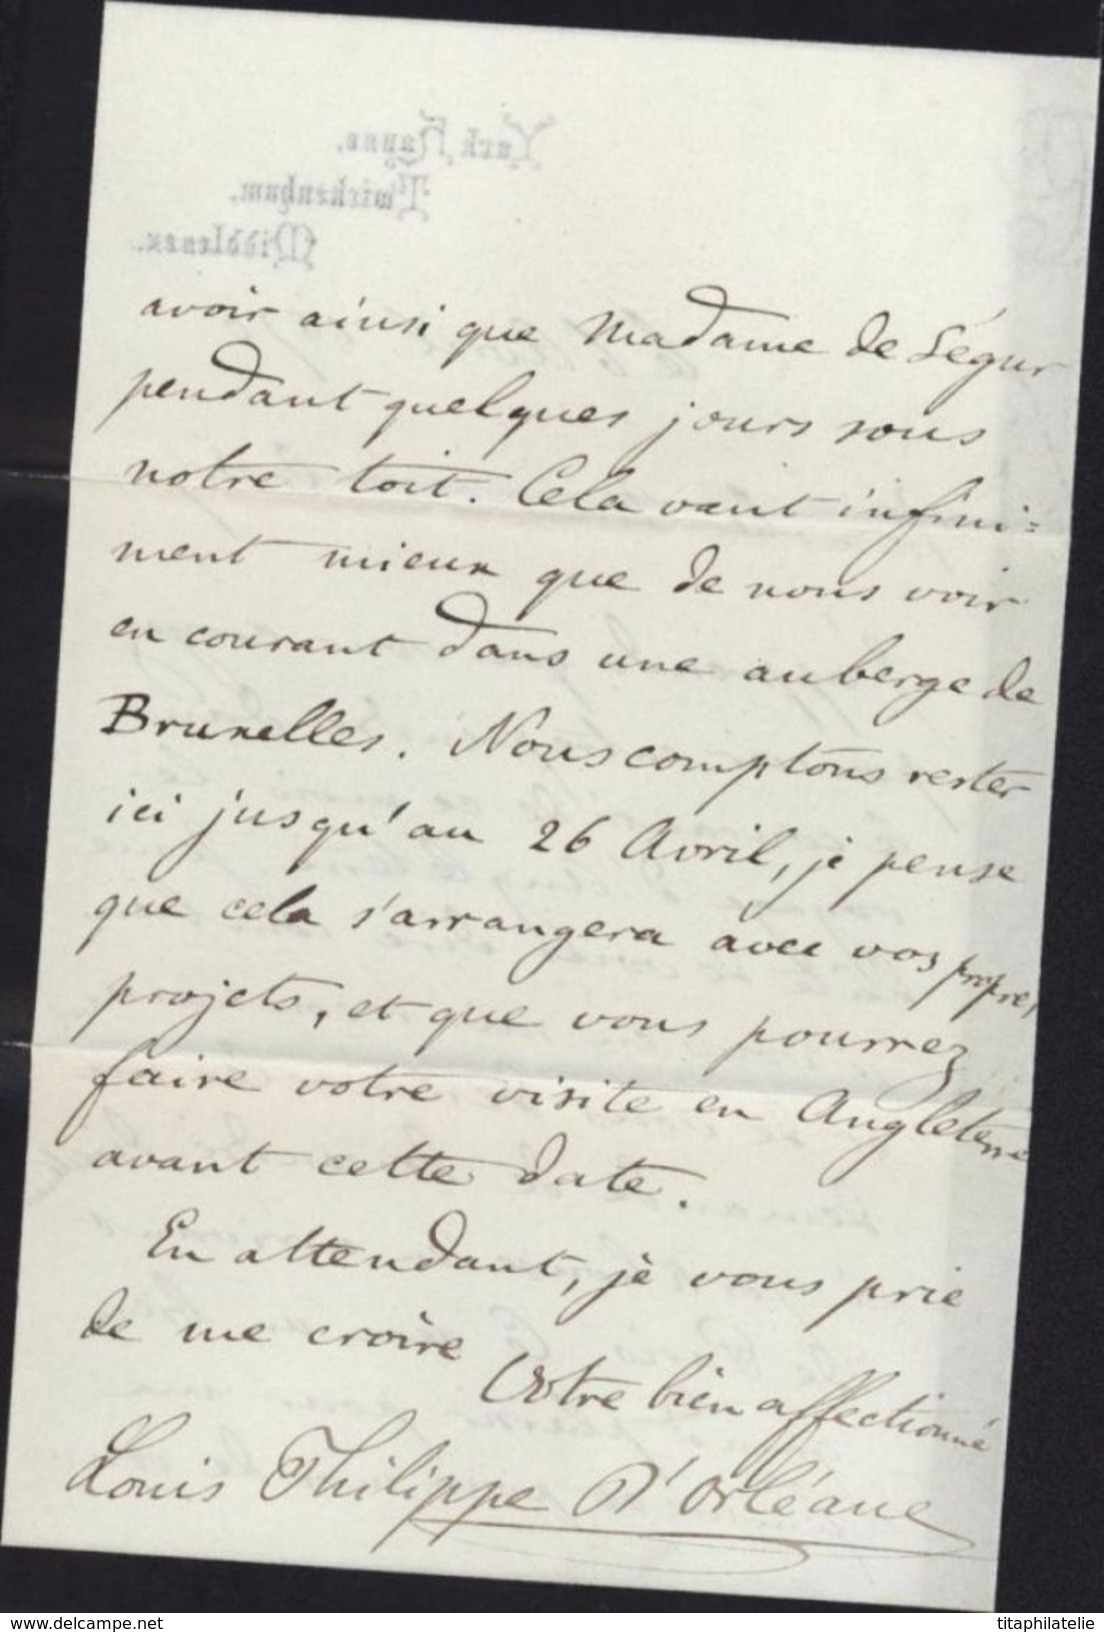 York House,
Twickenham,
Middlesex.
avoir ainsi que Madame de Ségur
pendant quelques jours sous
notre toit. Cela vaut infini=
ment mieux que de nous voir
en courant dans une auberge de
Bruxelles. Nous comptons rester
ici jusqu'au 26 Avril, je pense
que cela s'arrangera avec vos propres
projets, et que vous pourrez
faire votre visite en Angleterre
avant cette date.
En attendant, je vous prie
de me croire
Votre bien affectionné
Louis Philippe d'Orléans
titaphilatelie